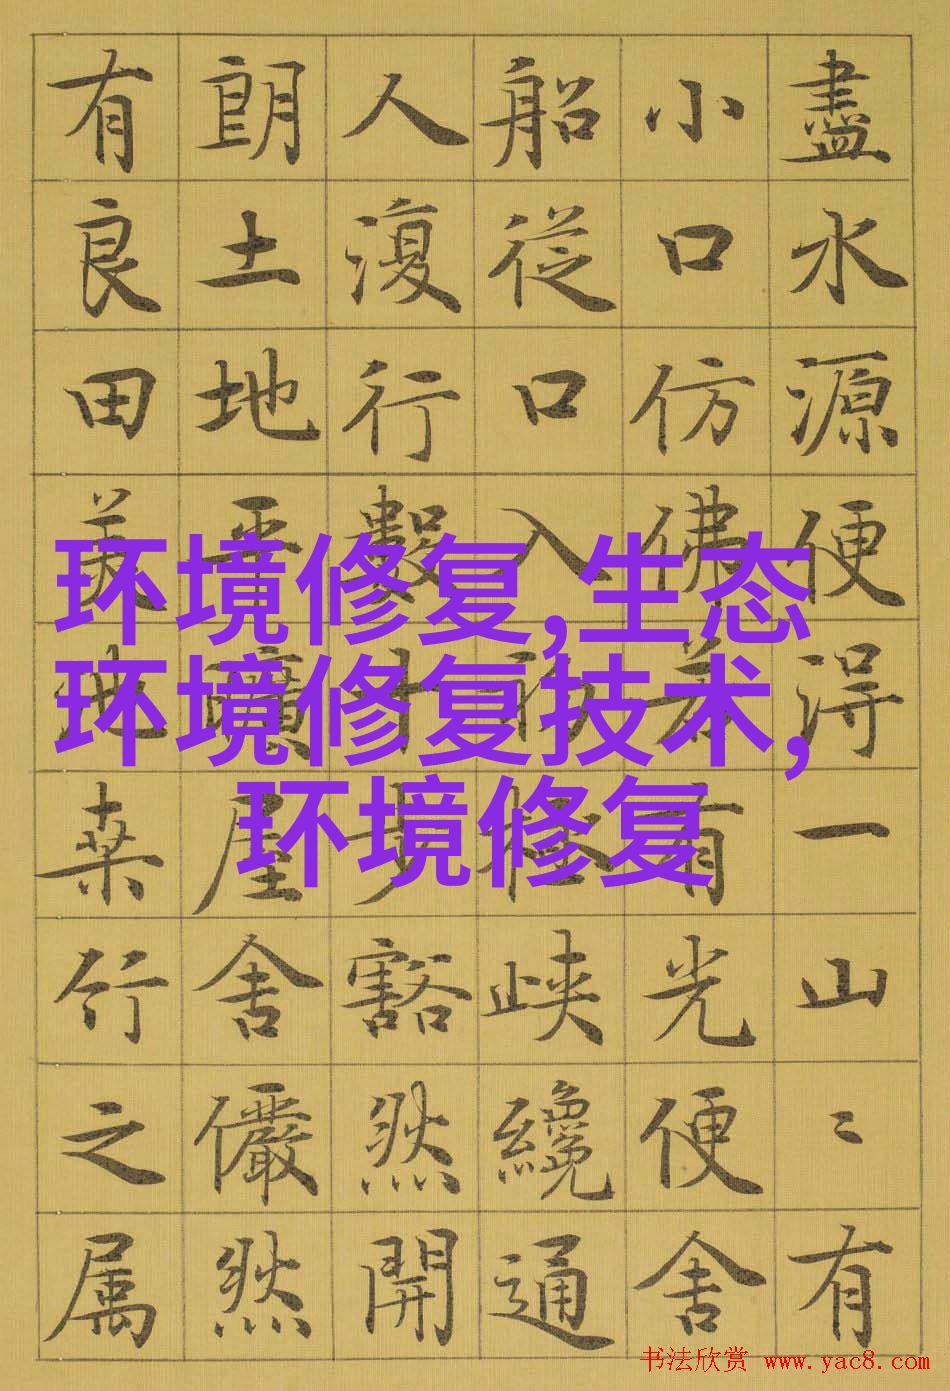 盡水源便得一山〻有
小口仿佛若有光便舍
船從口入初極峽纔通
人復行數十步豁然開
朗土地平曠屋舍儼然
有良田美地桑竹之属
环境修复,生态
环境修复技术,
环境修复
书法欣赏 www.yac8.com